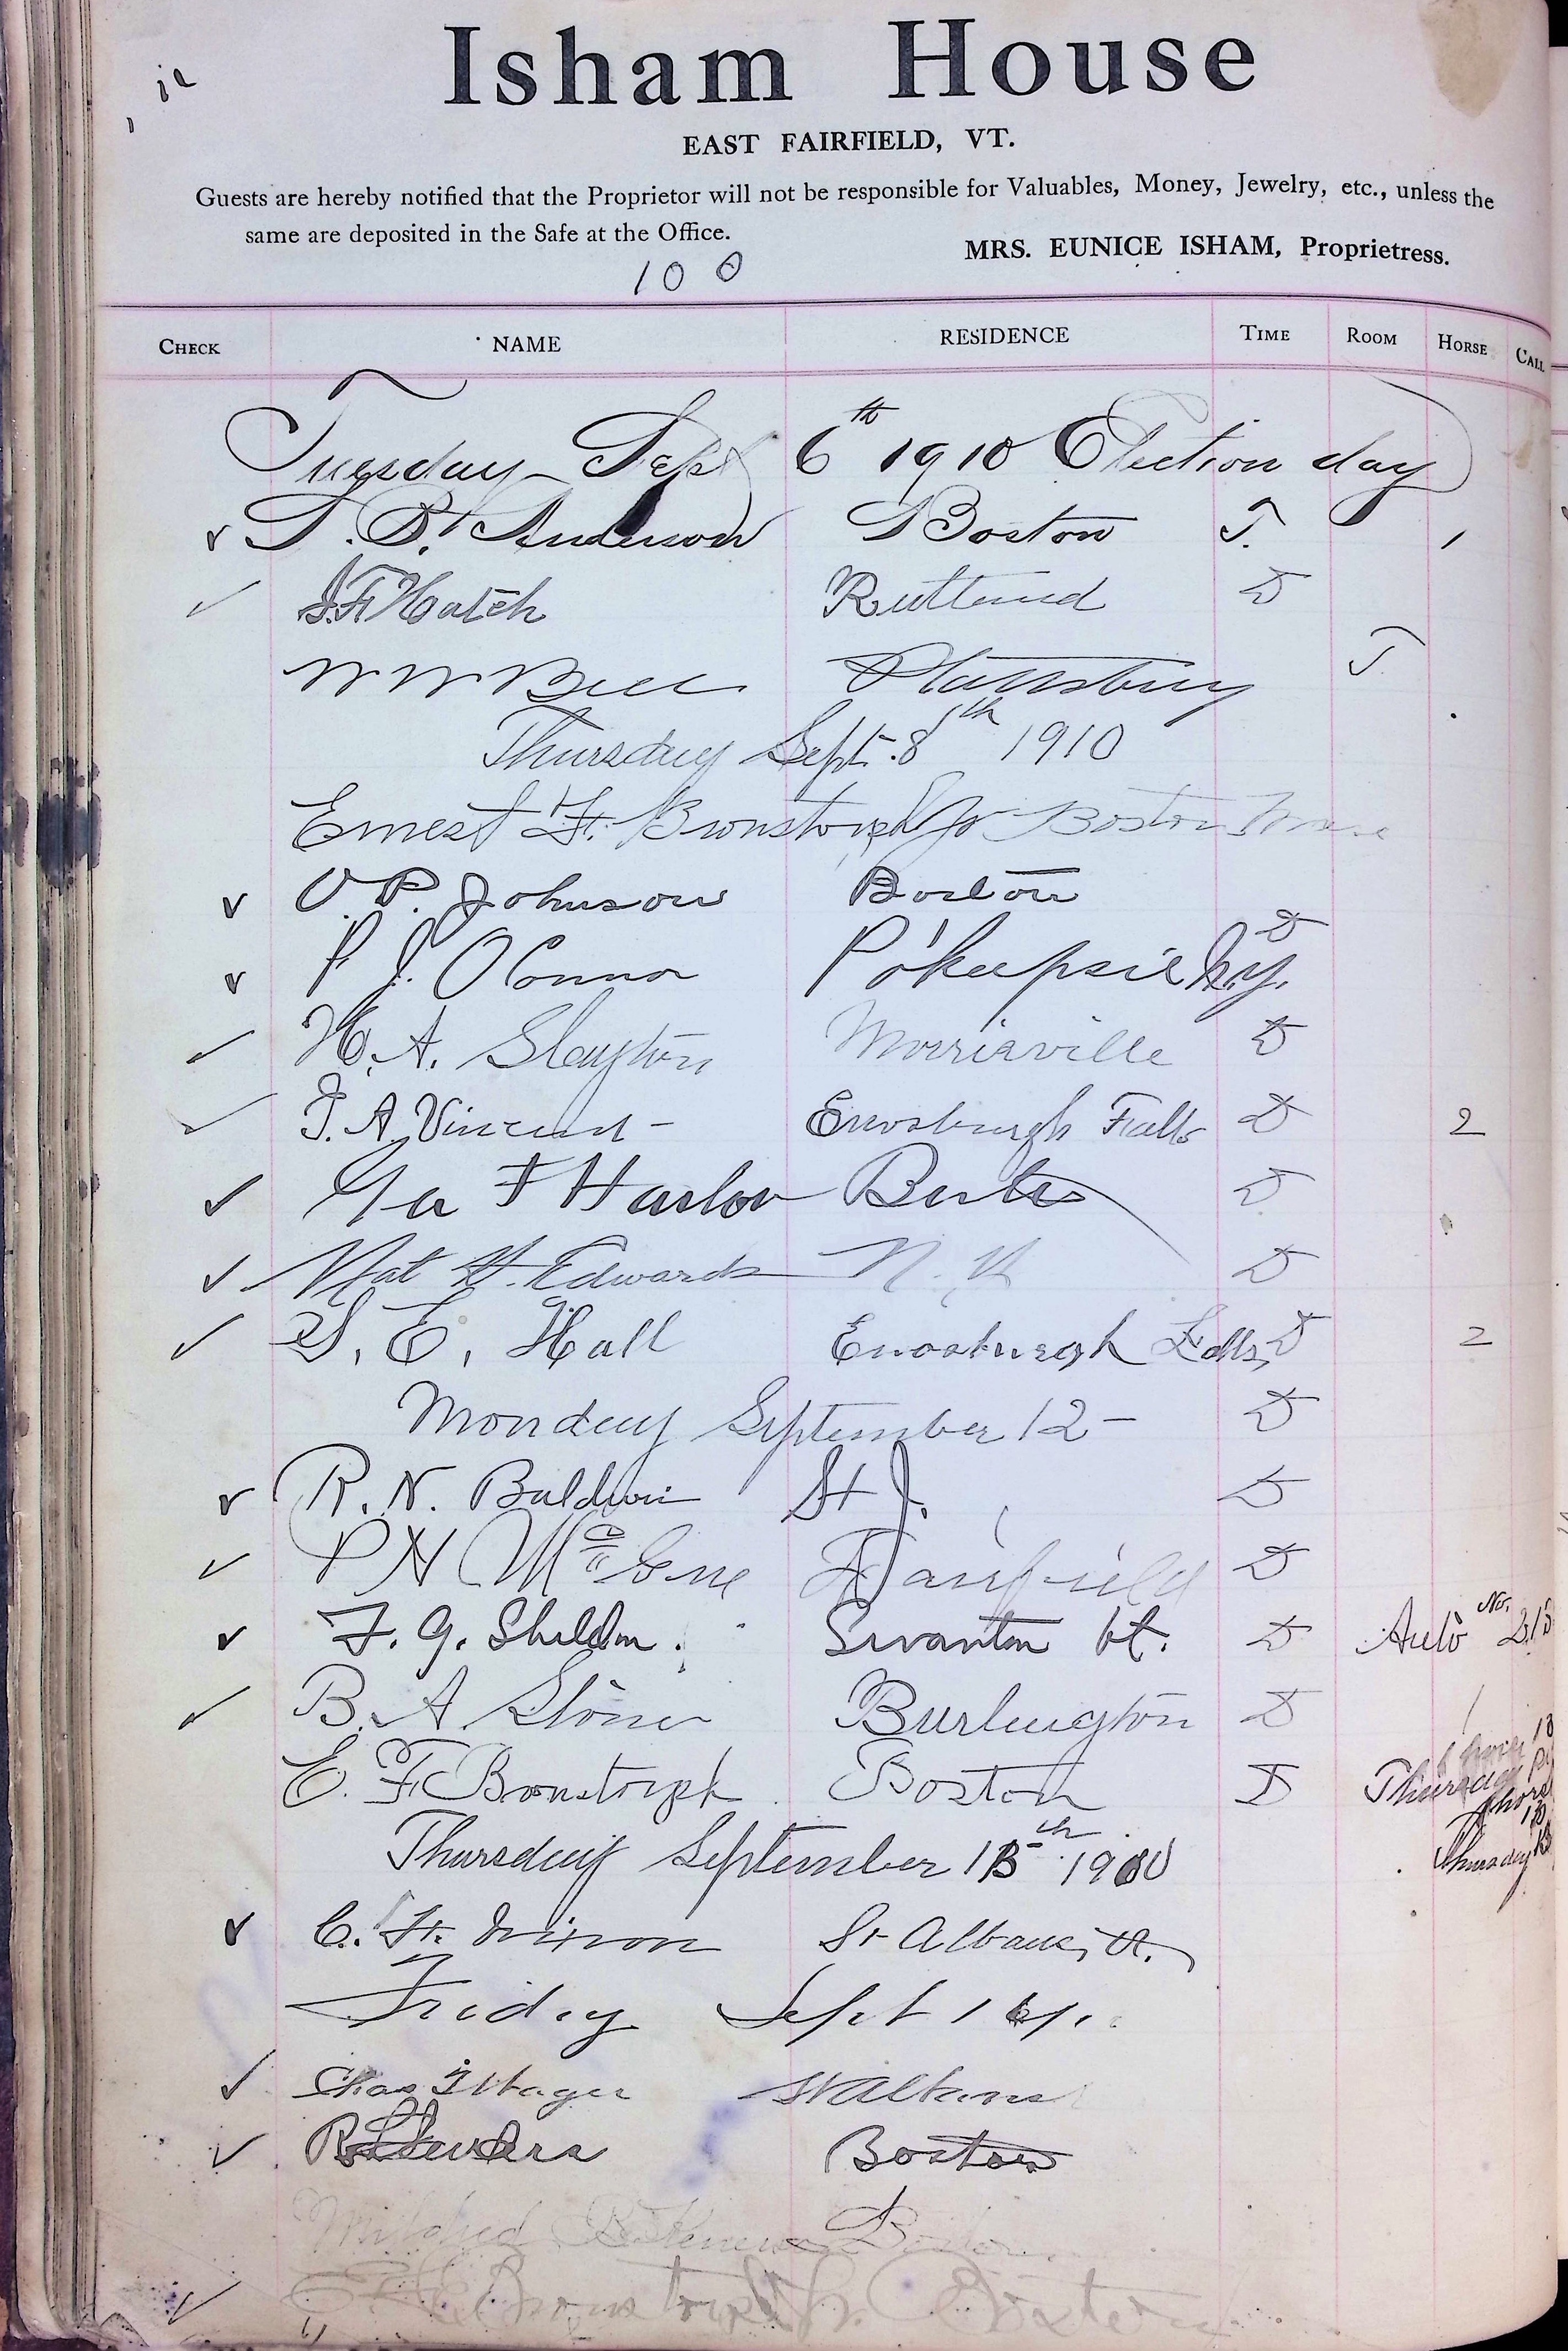 Isham House
EAST FAIRFIELD, VT.
Guests are hereby notified that the Proprietor will not be responsible for Valuables, Money, Jewelry, etc., unless the
same are deposited in the Safe at the Office.
MRS. EUNICE ISHAM, Proprietress.
100
CHECK NAME RESIDENCE TIME ROOM HORSE CALL
Tuesday Sept 6th 1910 Election day
S. B. Anderson Boston T. 1
J. F. Hatch Rutland D
W W Bell Plattsburg T
Thursday Sept. 8th 1910
Ernest F. Bronstorph Jr Boston Mass
O. P. Johnson Boston
P. J. O'Connor Po'keepsie N.Y. D
H. A. Slayton Morrisville D
F. A. Vincent Enosburgh Falls D 2
F Harlow D
Nat H. Edwards N. Y. D
S. E. Hall Enosburgh Falls D 2
Monday September 12 - D
R. N. Baldwin St J. D
P H Fairfield D
F. G. Sheldon Swanton Vt. D Auto No. 215
B. A. Stone Burlington D
E. F. Bronstorph Boston D Thursday
Thursday September 15th 1910
C. H. Nixon St Albans, Vt.
Friday Sept 16
Chas Hager St Albans
R Stevens Boston
Mildred B. Boston
E F Bronstorph Jr. Boston